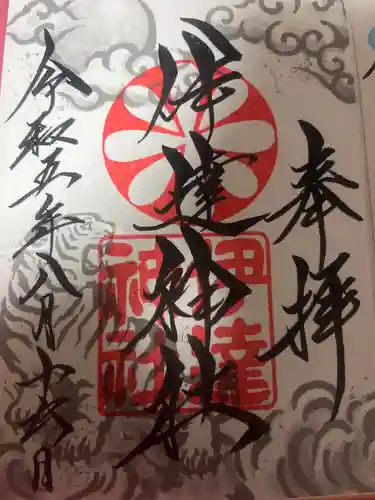 奉拝
伊達神社
伊達
神社
令和五年八月廿六日